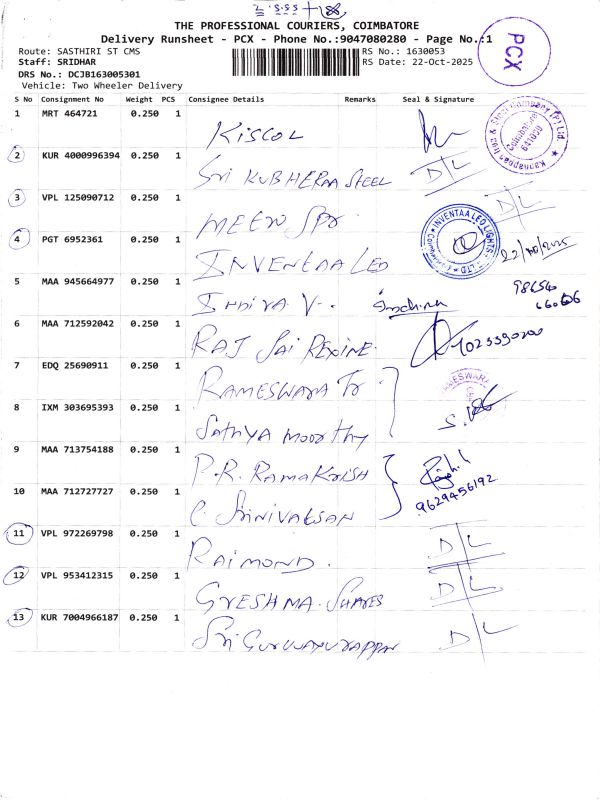 THE PROFESSIONAL COURIERS, COIMBATORE
Delivery Runsheet - PCX - Phone No.:9047080280 - Page No.:1
Route: SASTHIRI ST CMS
RS No.: 1630053
Staff: SRIDHAR
RS Date: 22-Oct-2025
DRS No.: DCJB163005301
Vehicle: Two Wheeler Delivery
PCX
S No Consignment No Weight PCS Consignee Details Remarks Seal & Signature
1 MRT 464721 0.250 1 KISCOL
Kannappan Iron & Steel Company (P) Ltd.
Coimbatore
641030
2 KUR 4000996394 0.250 1 SRI KUBHERAA STEEL D/L
3 VPL 125090712 0.250 1 MEEN SPR D/L
4 PGT 6952361 0.250 1 INVENTAA LED
INVENTAA LED LIGHTS
LTD
5 MAA 945664977 0.250 1 INDIRA V Indhira
98650
6 MAA 712592042 0.250 1 RAJ SAI REXINE
7 EDQ 25690911 0.250 1 RAMESWARA Tr
8 IXM 303695393 0.250 1 SATHYA MOORTHY
9 MAA 713754188 0.250 1 P.R. RAMAKRISH
9629456192
10 MAA 712727727 0.250 1 C. SRINIVAKSAN
11 VPL 972269798 0.250 1 RAIMOND. D/L
12 VPL 953412315 0.250 1 GRESHMA SHARES D/L
13 KUR 7004966187 0.250 1 SRI GURUVAYURAPPAN D/L